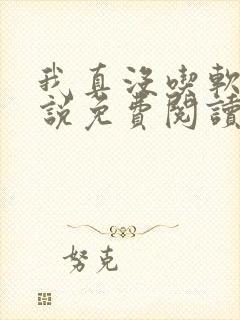 我真沒喫軟
說免費閱讀
努克